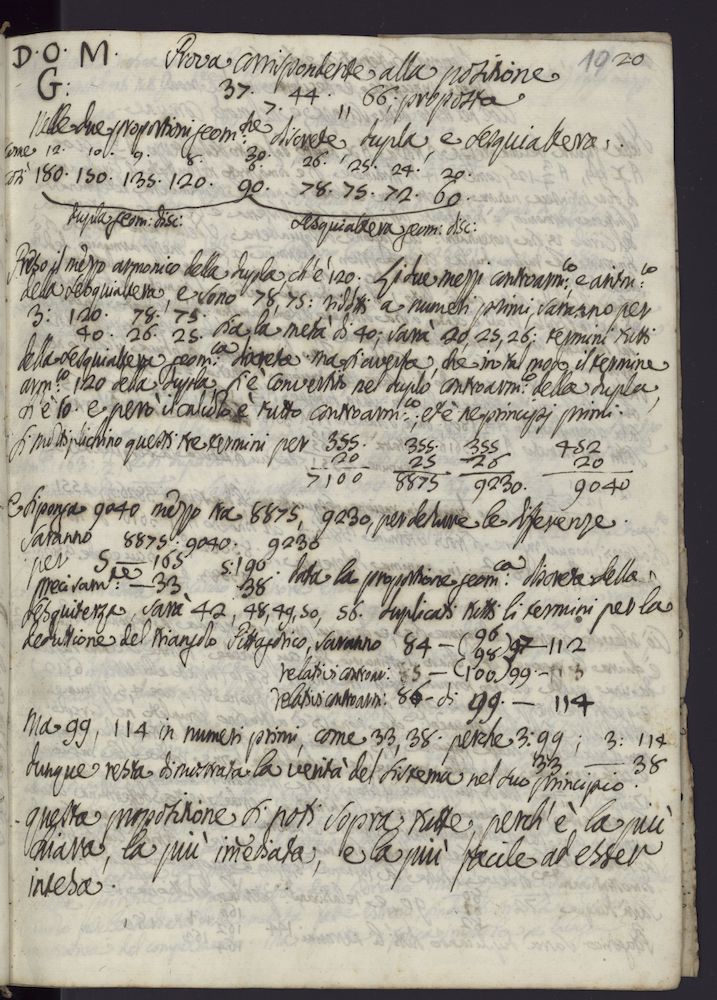 D. O. M. Prova corrispondente alla posizione 19 20
G: 37. 44. 66. proposta
7. 11
Nelle due proporzioni geom:che discrete dupla, e sesquialtera.
Come 12. 10. 9. 8. 30. 26. 25. 24. 20.
6.
180. 150. 135. 120. 90. 78. 75. 72. 60.
dupla geom: disc: sesquialtera geom: disc:
Preso il mezzo armonico della dupla, ch'è 120. Li due mezzi contrarm:co, e aritm:co
della sesquialtera, e sono 78, 75: ridotti a numeri primi, saranno per
3: 120. 78. 75.
40. 26. 25. Sia la metà di 40; sarà 20, 25, 26; termini tutti
della sesquialtera geom:ca discreta ma s'averta, che in tal modo il termine
arm:co 120 della dupla, s'è convertito nel duplo contrarm:co della dupla,
ch'è 10. e però il calcolo è tutto contrarm:co, et è ne principj primi.
Si moltiplichino questi tre termini per 355. 355. 355 452
20 25 26 20
7100 8875 9230. 9040
E si ponga 9040 mezzo tra 8875, 9230, per dedurre le differenze.
Saranno 8875. 9040. 9230
per 5 — 165 5: 190
precisam:te — 33 38. Data la proporzione geom:ca discreta della
sesquiterza, sarà 42, 48, 49, 50, 56. duplicati tutti li termini per la
deduzione del triangolo Pittagorico, saranno 84 — (96 98) 97 — 112
relativi controar: 85 — (100) 99 — 113
relativi contrarm: 86 — di 99 — 114
Ma 99, 114 in numeri primi, come 33, 38. perche 3: 99; 3: 114
33 — 38
dunque resta dimostrata la verità del sistema nel suo principio.
questa proposizione si noti sopra tutte, perch'è la più
chiara, la più immediata, e la più facile ad esser
intesa.